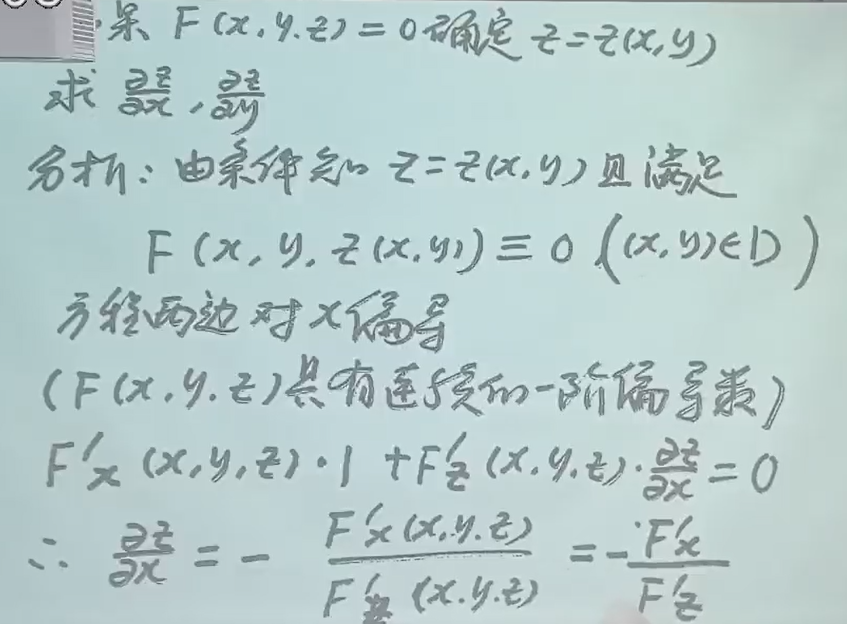 果 F(x,y,z)=0确定 z=z(x,y)
求 ∂z/∂x , ∂z/∂y
分析：由条件知 z=z(x,y)且满足
F(x,y,z(x,y))≡0 ((x,y)∈D)
方程两边对x偏导
(F(x,y,z)具有连续的一阶偏导数)
F'x(x,y,z)·1+F'z(x,y,z)·∂z/∂x=0
∴ ∂z/∂x = - F'x(x,y,z)/F'z(x,y,z) = - F'x/F'z